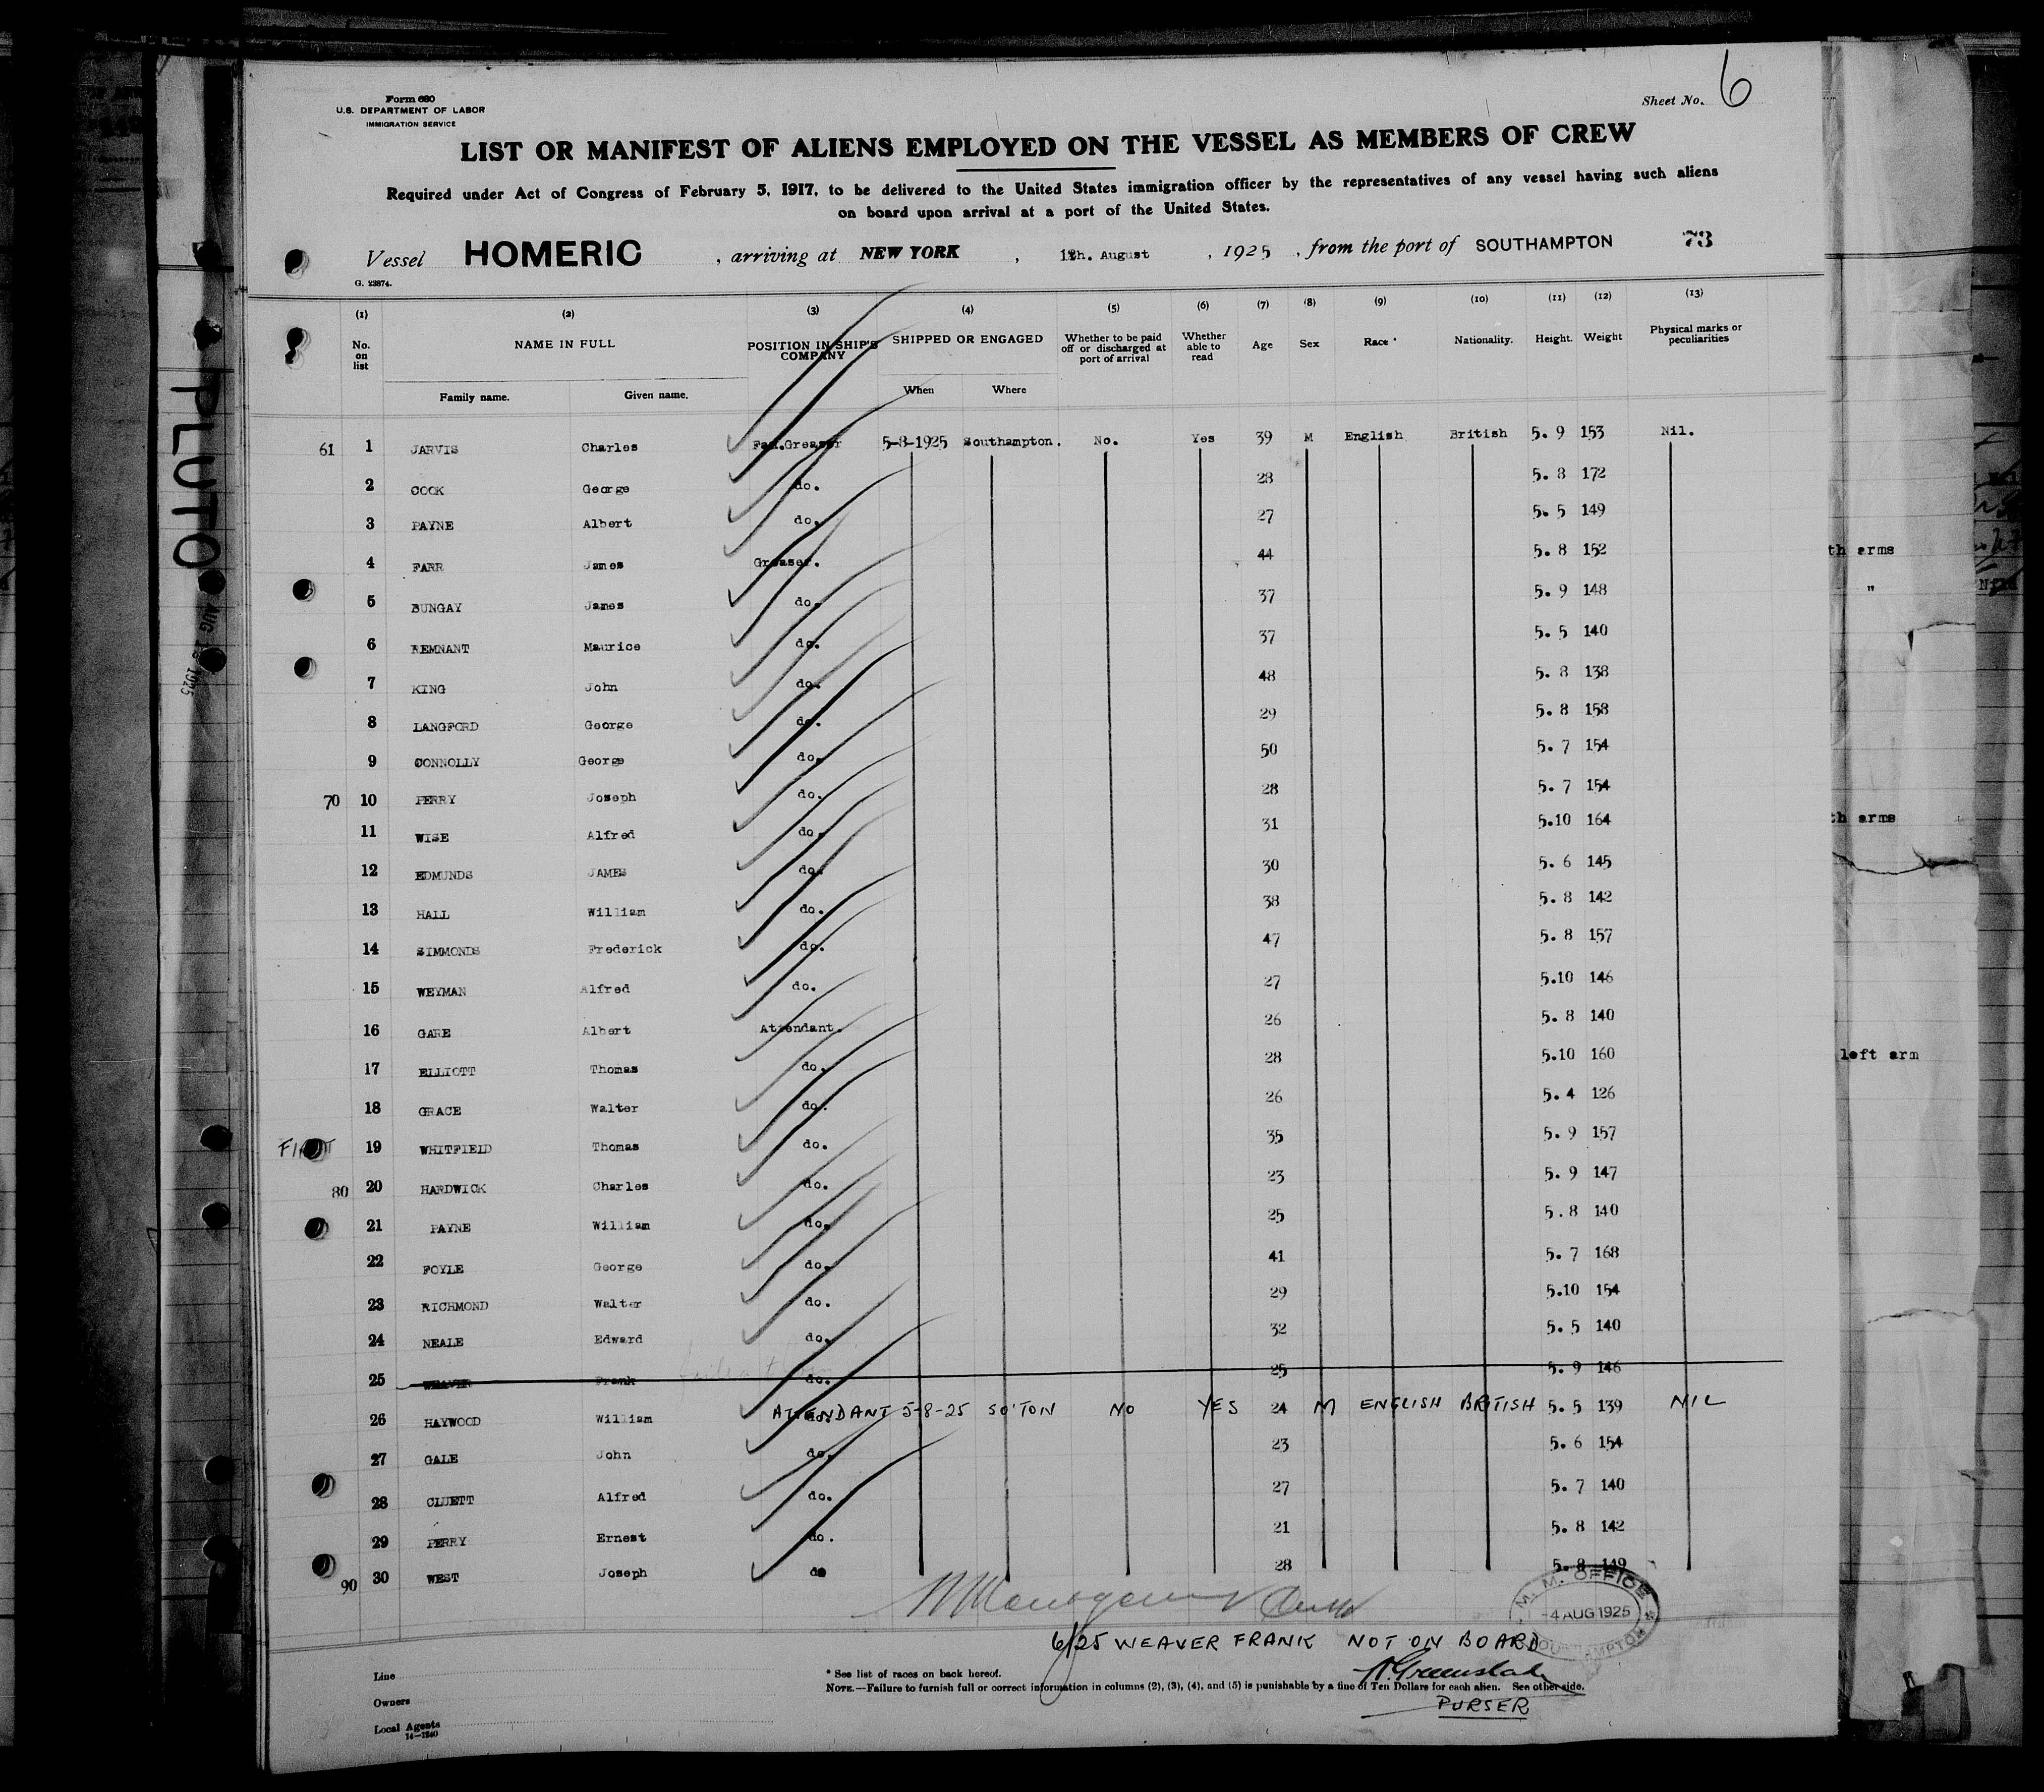 6
Form 680
U.S. DEPARTMENT OF LABOR
IMMIGRATION SERVICE
Sheet No.
LIST OR MANIFEST OF ALIENS EMPLOYED ON THE VESSEL AS MEMBERS OF CREW
Required under Act of Congress of February 5, 1917, to be delivered to the United States immigration officer by the representatives of any vessel having such aliens
on board upon arrival at a port of the United States.
Vessel HOMERIC , arriving at NEW YORK , August , 1925 , from the port of SOUTHAMPTON 73
G. 23874.
(1) (2) (3) (4) (5) (6) (7) (8) (9) (10) (11) (12) (13)
No. on list NAME IN FULL POSITION IN SHIP'S COMPANY SHIPPED OR ENGAGED Whether to be paid off or discharged at port of arrival Whether able to read Age Sex Race * Nationality. Height. Weight Physical marks or peculiarities
Family name. Given name. When Where
61 1 JARVIS Charles Greaser 5-8-1925 Southampton. No. Yes 39 M English British 5. 9 153 Nil.
2 COOK George do. 28 5. 8 172
3 PAYNE Albert do. 27 5. 5 149
4 FARR James Greaser. 44 5. 8 152
5 BUNGAY James do. 37 5. 9 148
6 REMNANT Maurice do. 37 5. 5 140
7 KING John do. 48 5. 8 138
8 LANGFORD George do. 29 5. 8 158
9 CONNOLLY George do. 50 5. 7 154
70 10 PERRY Joseph do. 28 5. 7 154
11 WISE Alfred do. 31 5.10 164
12 EDMUNDS JAMES do. 30 5. 6 145
13 HALL William do. 38 5. 8 142
14 SIMMONDS Frederick do. 47 5. 8 157
15 WEYMAN Alfred do. 27 5.10 146
16 GARE Albert Attendant. 26 5. 8 140
17 ELLIOTT Thomas do. 28 5.10 160
18 GRACE Walter do. 26 5. 4 126
19 WHITFIELD Thomas do. 35 5. 9 157
80 20 HARDWICK Charles do. 23 5. 9 147
21 PAYNE William do. 25 5. 8 140
22 FOYLE George do. 41 5. 7 168
23 RICHMOND Walter do. 29 5.10 154
24 NEALE Edward do. 32 5. 5 140
25 WEAVER Frank do. 25 5. 9 146
26 HAYWOOD William ATTENDANT 5-8-25 SO'TON NO YES 24 M ENGLISH BRITISH 5. 5 139 NIL
27 GALE John do. 23 5. 6 154
28 CLUETT Alfred do. 27 5. 7 140
29 PERRY Ernest do. 21 5. 8 142
90 30 WEST Joseph do 28 5. 8 149
M. M. OFFICE
-4 AUG 1925
SOUTHAMPTON
6/25 WEAVER FRANK NOT ON BOARD
PURSER
Line
Owners
Local Agents
14-1240
* See list of races on back hereof.
NOTE.—Failure to furnish full or correct information in columns (2), (3), (4), and (5) is punishable by a fine of Ten Dollars for each alien. See other side.
PLUTO
AUG 1925
th arms
"
th arms
left arm